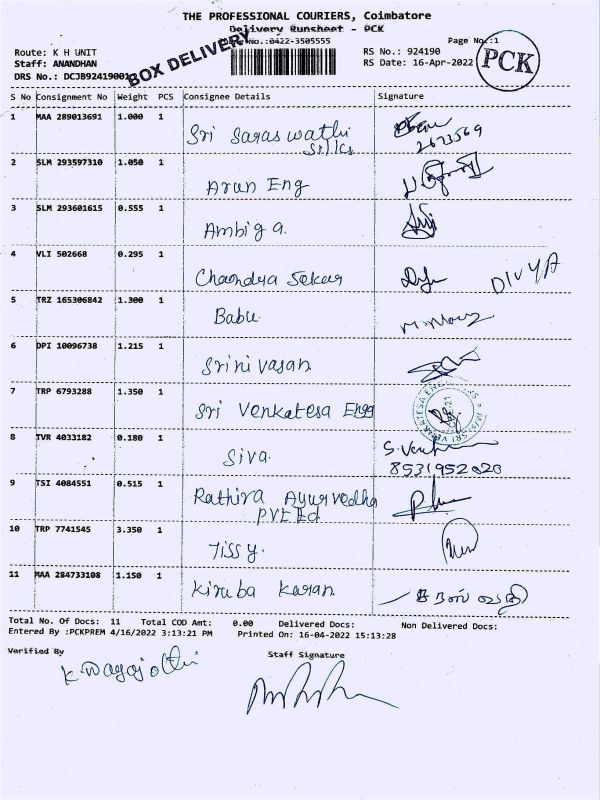 THE PROFESSIONAL COURIERS, Coimbatore
Delivery Runsheet - PCK
No.:0422-3505555
Page No.:1
Route: K H UNIT
RS No.: 924190
Staff: ANANDHAN
RS Date: 16-Apr-2022
DRS No.: DCJB92419001
BOX DELIVERY
PCK
S No Consignment No Weight PCS Consignee Details Signature
1 MAA 289013691 1.000 1 Sri Saraswathi
2673569
2 SLM 293597310 1.050 1 Arun Eng
3 SLM 293601615 0.555 1 Ambiga.
4 VLI 502668 0.295 1 Chandra Sekar DIVYA
5 TRZ 165306842 1.300 1 Babu
6 DPI 10096738 1.215 1 Srinivasan
7 TRP 6793288 1.350 1 Sri Venkatesa Engg
8 TVR 4033182 0.180 1 Siva.
8531952020
9 TSI 4084551 0.515 1 Rathira Ayurvedha
10 TRP 7741545 3.350 1 Tissy.
11 MAA 284733108 1.150 1 Kiruba Karan
Total No. Of Docs: 11 Total COD Amt: 0.00 Delivered Docs: Non Delivered Docs:
Entered By :PCKPREM 4/16/2022 3:13:21 PM Printed On: 16-04-2022 15:13:28
Verified By Staff Signature